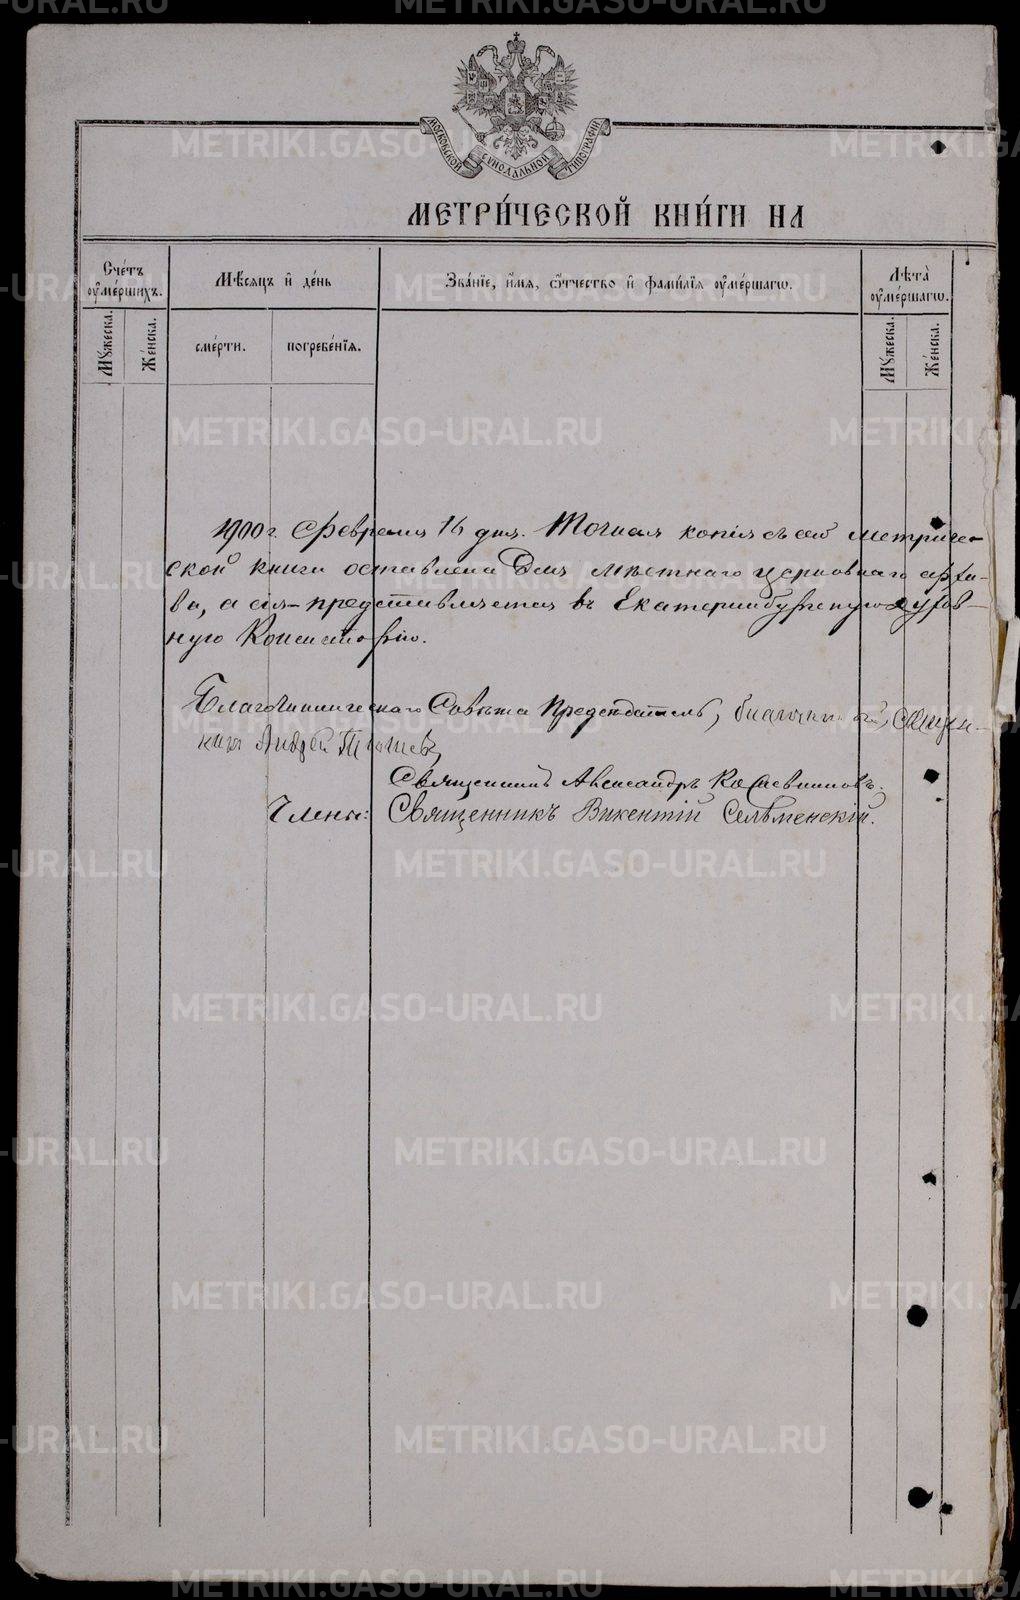 METRIKI.GASO-URAL.RU
МОСКОВСКОЙ СУНОДАЛЬНОЙ ТИПОГРАФІИ
МЕТРИ́ЧЕСКОЙ КНИ́ГИ НА
Сче́тъ ᲂу҆ме́ршихъ.
Мѣ́сяцъ и҆ де́нь
Зва́нїе, и҆́мѧ, ѻ҆́тчество и҆ фами́лїѧ ᲂу҆ме́ршагѡ.
Лѣ́та ᲂу҆ме́ршагѡ.
Мꙋ́жеска.
Же́нска.
сме́рти.
погребе́нїѧ.
Мꙋ́жеска.
Же́нска.
1900 г. Февраля 16 дня. Точная копія съ сей метриче-
ской книги оставлена для мѣстнаго церковнаго архи-
ва, а сія представляется въ Екатеринбургскую духов-
ную Консисторію.
Благочинническаго Совѣта Предсѣдатель, благочинный, священ-
никъ Андрей
Священникъ Александръ
Члены: Священникъ Викентій Сельменскій.